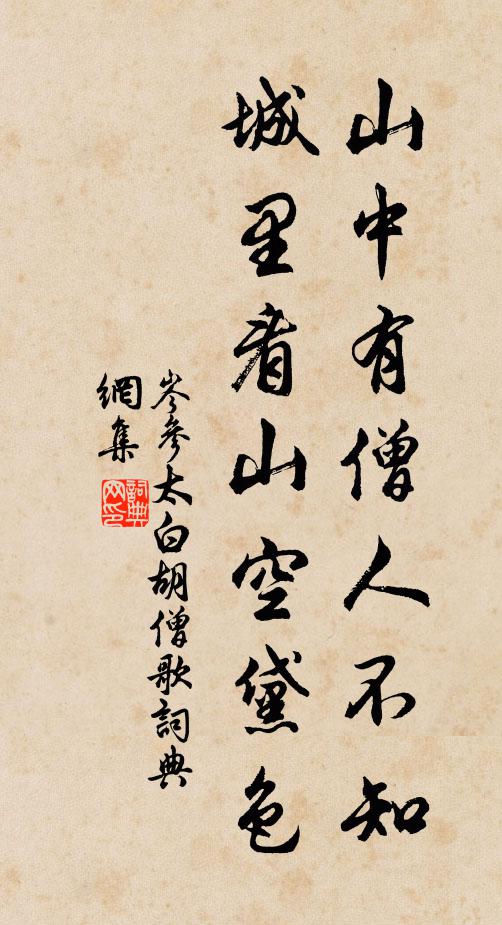 山中有僧人不知
城里看山空黛色
岑參太白胡僧歌詞典
網集
詞典
网印